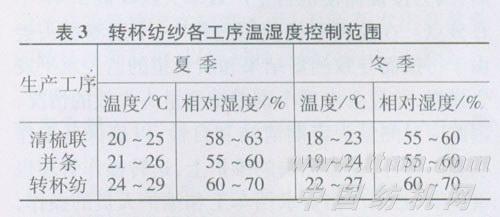 表3 转杯纺纱各工序温湿度控制范围
生产工序 夏季 冬季
温度/℃ 相对湿度/% 温度/℃ 相对湿度/%
清梳联 20~25 58~63 18~23 55~60
并条 21~26 55~60 19~24 55~60
转杯纺 24~29 60~70 22~27 60~70
www.ttmn.com
中国纺机网